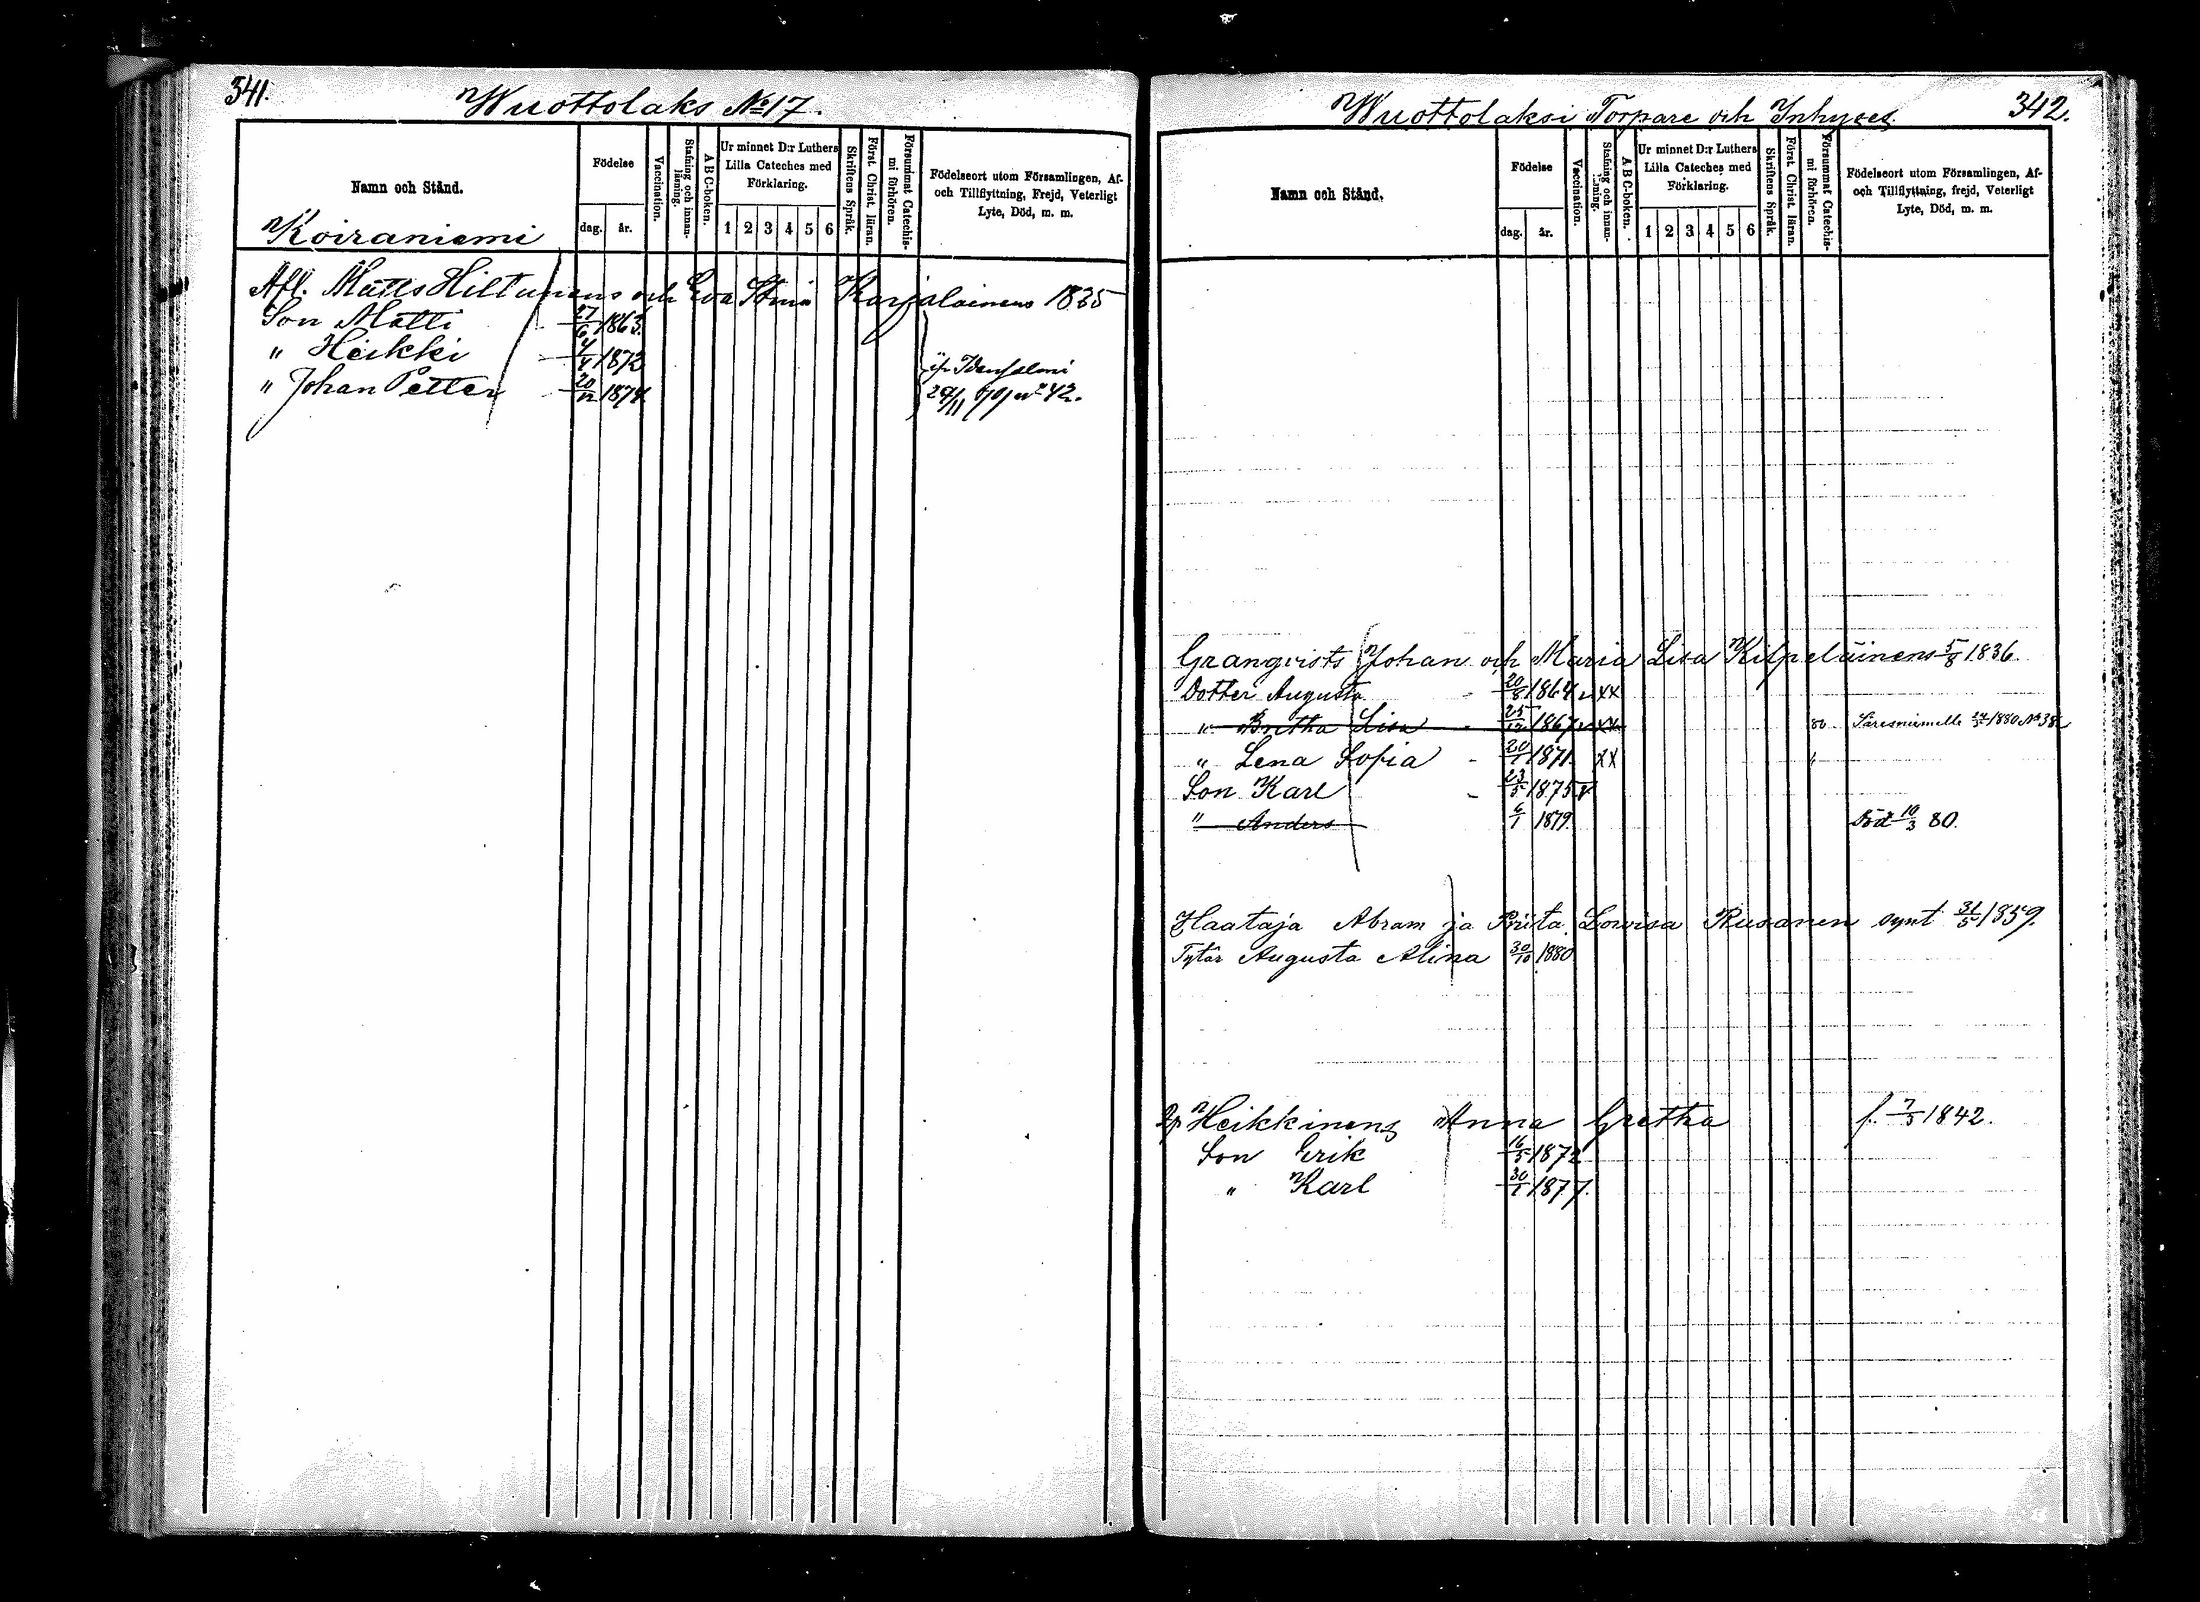 341.
Wuottolaks No 17.
Namn och Stånd.
Födelse
dag. år.
Vaccination.
Stafning och innanläsning.
ABC-boken.
Ur minnet D:r Luthers Lilla Cateches med Förklaring.
1 2 3 4 5 6
Skriftens Språk.
Först. Christ. läran.
Försummat Catechismi förhören.
Födelseort utom Församlingen, Af- och Tillflyttning, Frejd, Veterligt Lyte, Död, m. m.
Koiraniemi
Afl. Matts Hiltunens och Eva Stina Karjalainens 1835
Son Matti 27/6 1863
" Heikki 4/4 1872
" Johan Petter 20/12 1874
Idensalmi
42.
342.
Wuottolaksi Torpare och Inhyses
Namn och Stånd.
Födelse
dag. år.
Vaccination.
Stafning och innanläsning.
ABC-boken.
Ur minnet D:r Luthers Lilla Cateches med Förklaring.
1 2 3 4 5 6
Skriftens Språk.
Först. Christ. läran.
Försummat Catechismi förhören.
Födelseort utom Församlingen, Af- och Tillflyttning, frejd, Veterligt Lyte, Död, m. m.
Granqvists Johan och Maria Lisa Kilpeläinens 5/8 1836.
Dotter Augusta 20/8 1864 v xx
" Britha Lisa 25/12 1867 v xx 80 Säresniemelle 1880 No 38
" Lena Sofia 20/1 1871 xx "
Son Karl 23/5 1875 v
" Anders 6/1 1879 Död 10/3 80.
Haataja Abram ja Briita Lovisa Rusanen synt 31/5 1859.
Tytär Augusta Alina 30/10 1880
Heikkinens Anna Gretha f. 7/5 1842.
Son Erik 16/5 1872
" Karl 30/1 1877.